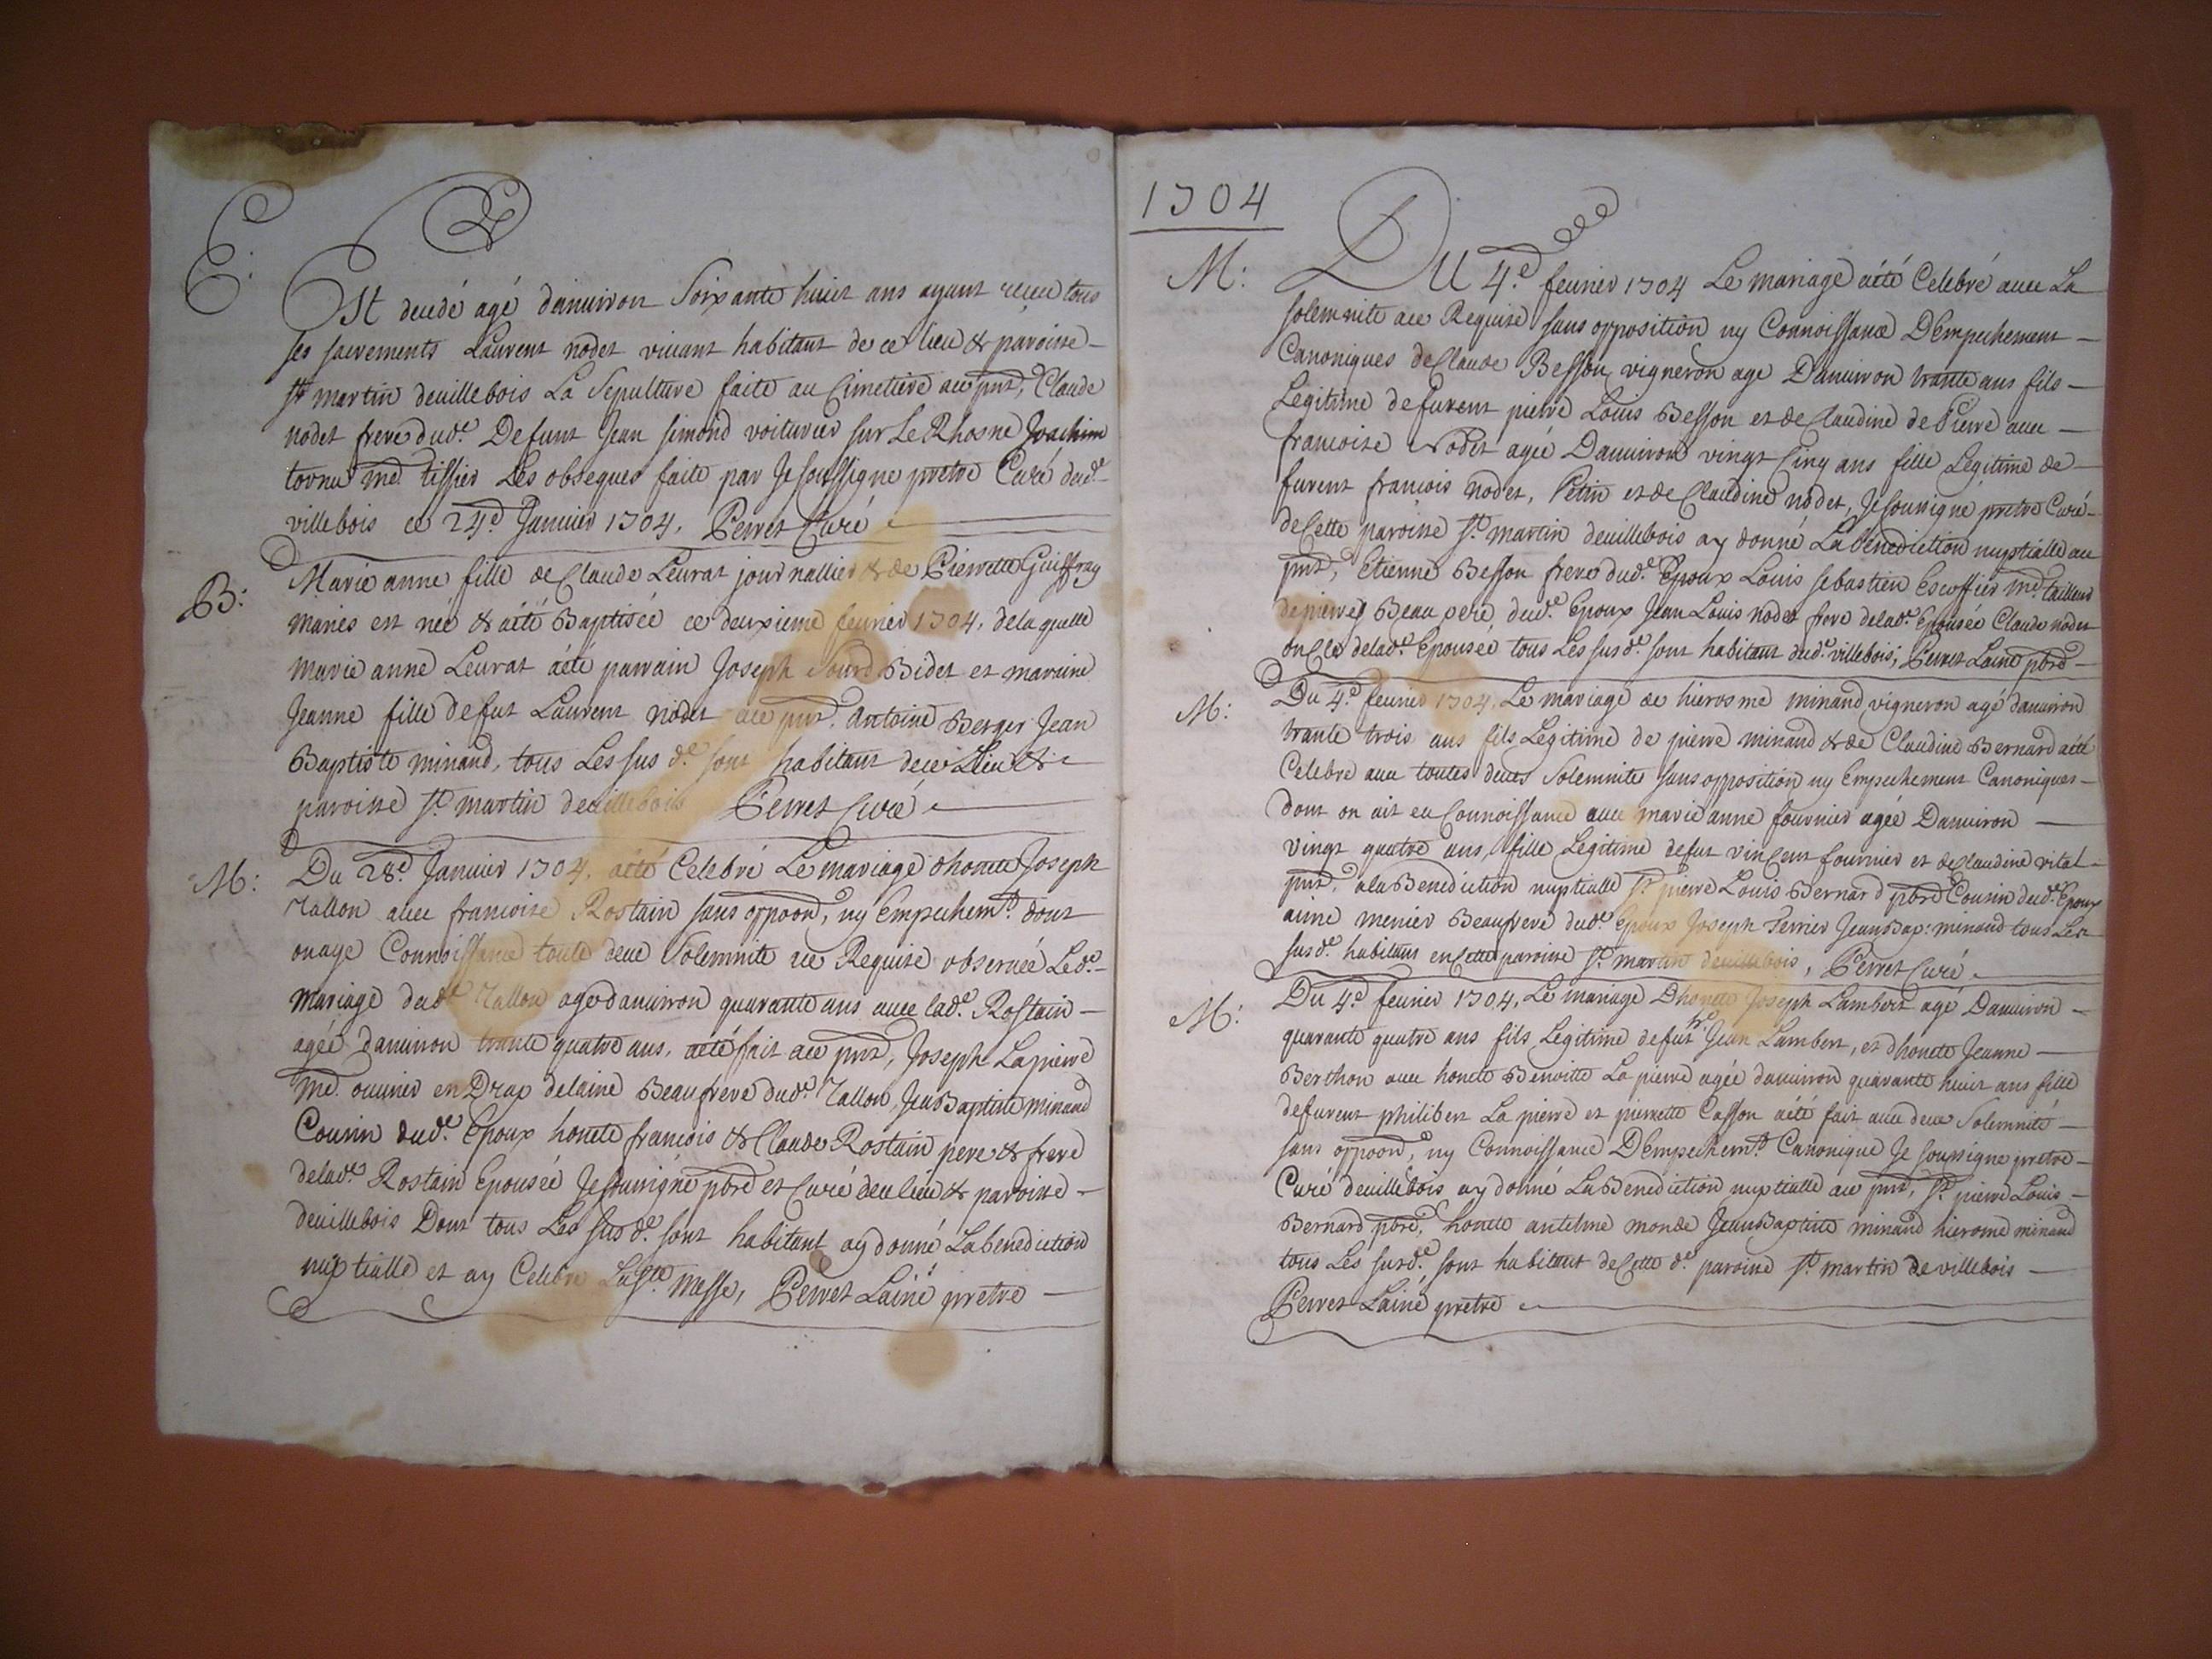 E:
Est decedé agé d'enuiron Soixante huict ans ayant receu tous
ses sacrements Laurent nodet viuant habitant de ce lieu & paroisse
st martin deuillebois La Sepulture faite au Cimetiere ace pnt, Claude
nodet frere dud.e Defunt Jean simond voiturier sur Le Rhosne Joachim
tornu me. tissier Les obseques faite par Je soussigne pretre Curé dud.e
villebois ce 24.e Januier 1704, Perret Curé
B:
Marie anne fille de Claude Leurat journallier & de Pierrette Guiffray
mariés est née & aété Baptisée ce deuxieme feurier 1704, delaquelle
marie anne Leurat aété parrain Joseph Sourd Bidet et maraine
Jeanne fille defut Laurent nodet ace pnt. Antoine Berger Jean
Baptiste minand, tous Les sus d.e sont habitant dece Lieu &
paroisse st. martin deuillebois Perret Curé
M:
Du 28.e Januier 1704, aété Celebré Le mariage dhonete Joseph
Tallon auec francoise Rostain sans oppoon, ny Empechemt. dont
onaye Connoissance toute deue Solemnite ace Requise obseruée Led.e
mariage dud.e Tallon agé danuiron quarante ans auec lad.e Rostain
agée danuiron trante quatre ans, aété fait ace pnt, Joseph Lapierre
me. ouurier en Drap delaine Beaufrere dud.e Tallon, Jean Baptiste minand
Cousin dud.e Epoux honete francois & Claude Rostain pere & frere
delad.e Rostain Epousée Jesousigné pbre et Curé deu lieu & paroisse
deuillebois Dont tous Les sus d.e sont habitant ay donné Labenediction
nuptialle et ay Celebre La ste. Messe, Perret Lainé pretre
1704
M:
Du 4.e feurier 1704 Le mariage aété Celebré auec La
solemnite ace Requise sans opposition ny Connoissance D'Empechement
Canoniques de Claude Besson vigneron age Danuiron trante ans fils
Legitime defurent pierre Louis Besson et de Claudine de Pierre auec
francoise Nodet agée Danuiron vingt Cinq ans fille Legitime de
furent francois nodet, Petin et de Claudine nodet, Jesousigné pretre Curé
de Cette paroisse st. martin deuillebois ay donné La bénediction nuptialle au
pnt, Etienne Besson frere dud.e Epoux Louis sebastien Escoffier me. tailleur
depierre Beau pere dud.e Epoux Jean Louis nodet frere delad.e Epousée Claude nodet
oncle delad.e Epousée tous Les sus d.e sont habitant dud.e villebois; Perret Lainé pbre
M:
Du 4.e feurier 1704, Le mariage de hierosme minand vigneron agé danuiron
trante trois ans fils Légitime de pierre minand & de Claudine Bernard aété
Celebre auec toutes deues Solemnite sans opposition ny Empechement Canoniques
dont on ait eu Connoissance auec marie anne fournier agée Danuiron
vingt quatre ans, fille Legitime defut vincent fournier et de Claudine vital
pnt, ala Benediction nuptialle sr. pierre Louis Bernard pbre Cousin dud.e Epoux
aimé menier Beaufrere dud.e Epoux Joseph Perrier Jean Bap: minand tous Les
sus d.e habitans en Cette paroisse st. martin deuillebois, Perret Curé
M:
Du 4.e feurier 1704, Le mariage Dhonete Joseph Lambert agé Danuiron
quarante quatre ans fils Legitime defut sr. Jean Lambert, et dhonete Jeanne
Berthon auec honete Benoitte La pierre agée danuiron quarante huit ans fille
defurent philibert La pierre et pierrette Casson aété fait auec deue Solemnité
sans oppoon, ny Connoissance D'Empechemt. Canonique Je soussigne pretre
Curé deuillebois ay donné La Benediction nuptialle ace pnt, sr. pierre Louis
Bernard pbre, honete antelme monde Jean Baptiste minand hierome minand
tous Les susd.e sont habitant de Cette d.e paroisse st. martin de villebois
Perret Lainé pretre